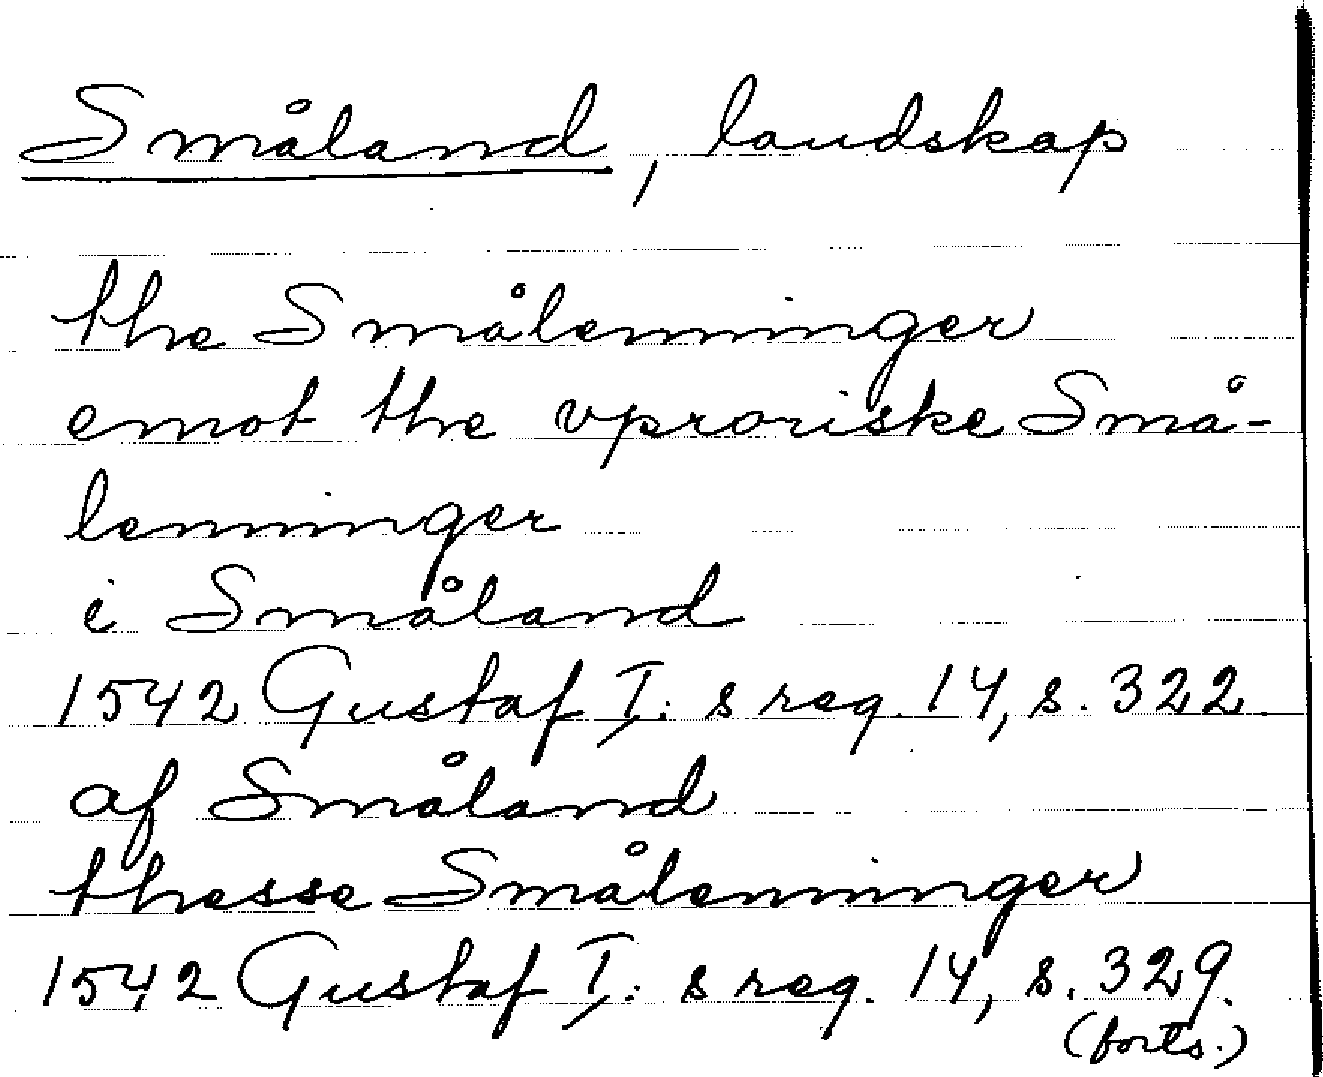 Småland, landskap
the Smålenninger
emot the vproriske Små-
lenninger
i Småland
1542 Gustaf I:s reg. 14, s. 322.
af Småland
thesse Smålenninger
1542 Gustaf I:s reg. 14, s. 329.
(forts.)